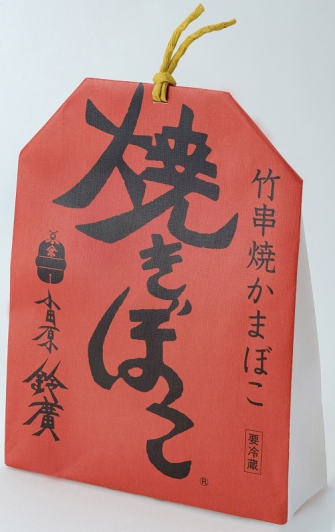 竹串焼かまぼこ
要冷蔵
焼きぼこ
®
小田原
鈴廣